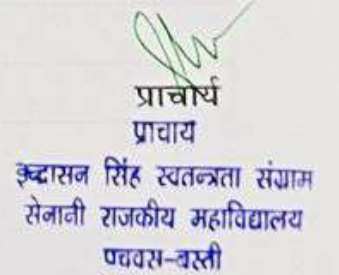 प्राचार्य
प्राचार्य
इन्द्रासन सिंह स्वतन्त्रता संग्राम
सेनानी राजकीय महाविद्यालय
पचवस-बस्ती